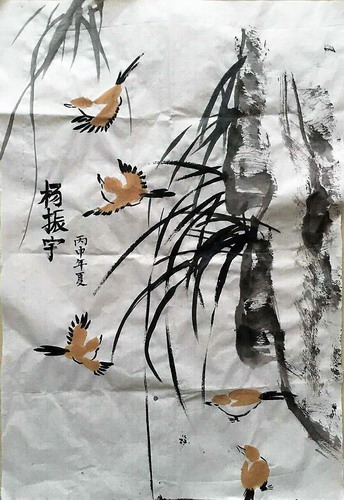 杨振宇
丙申年夏